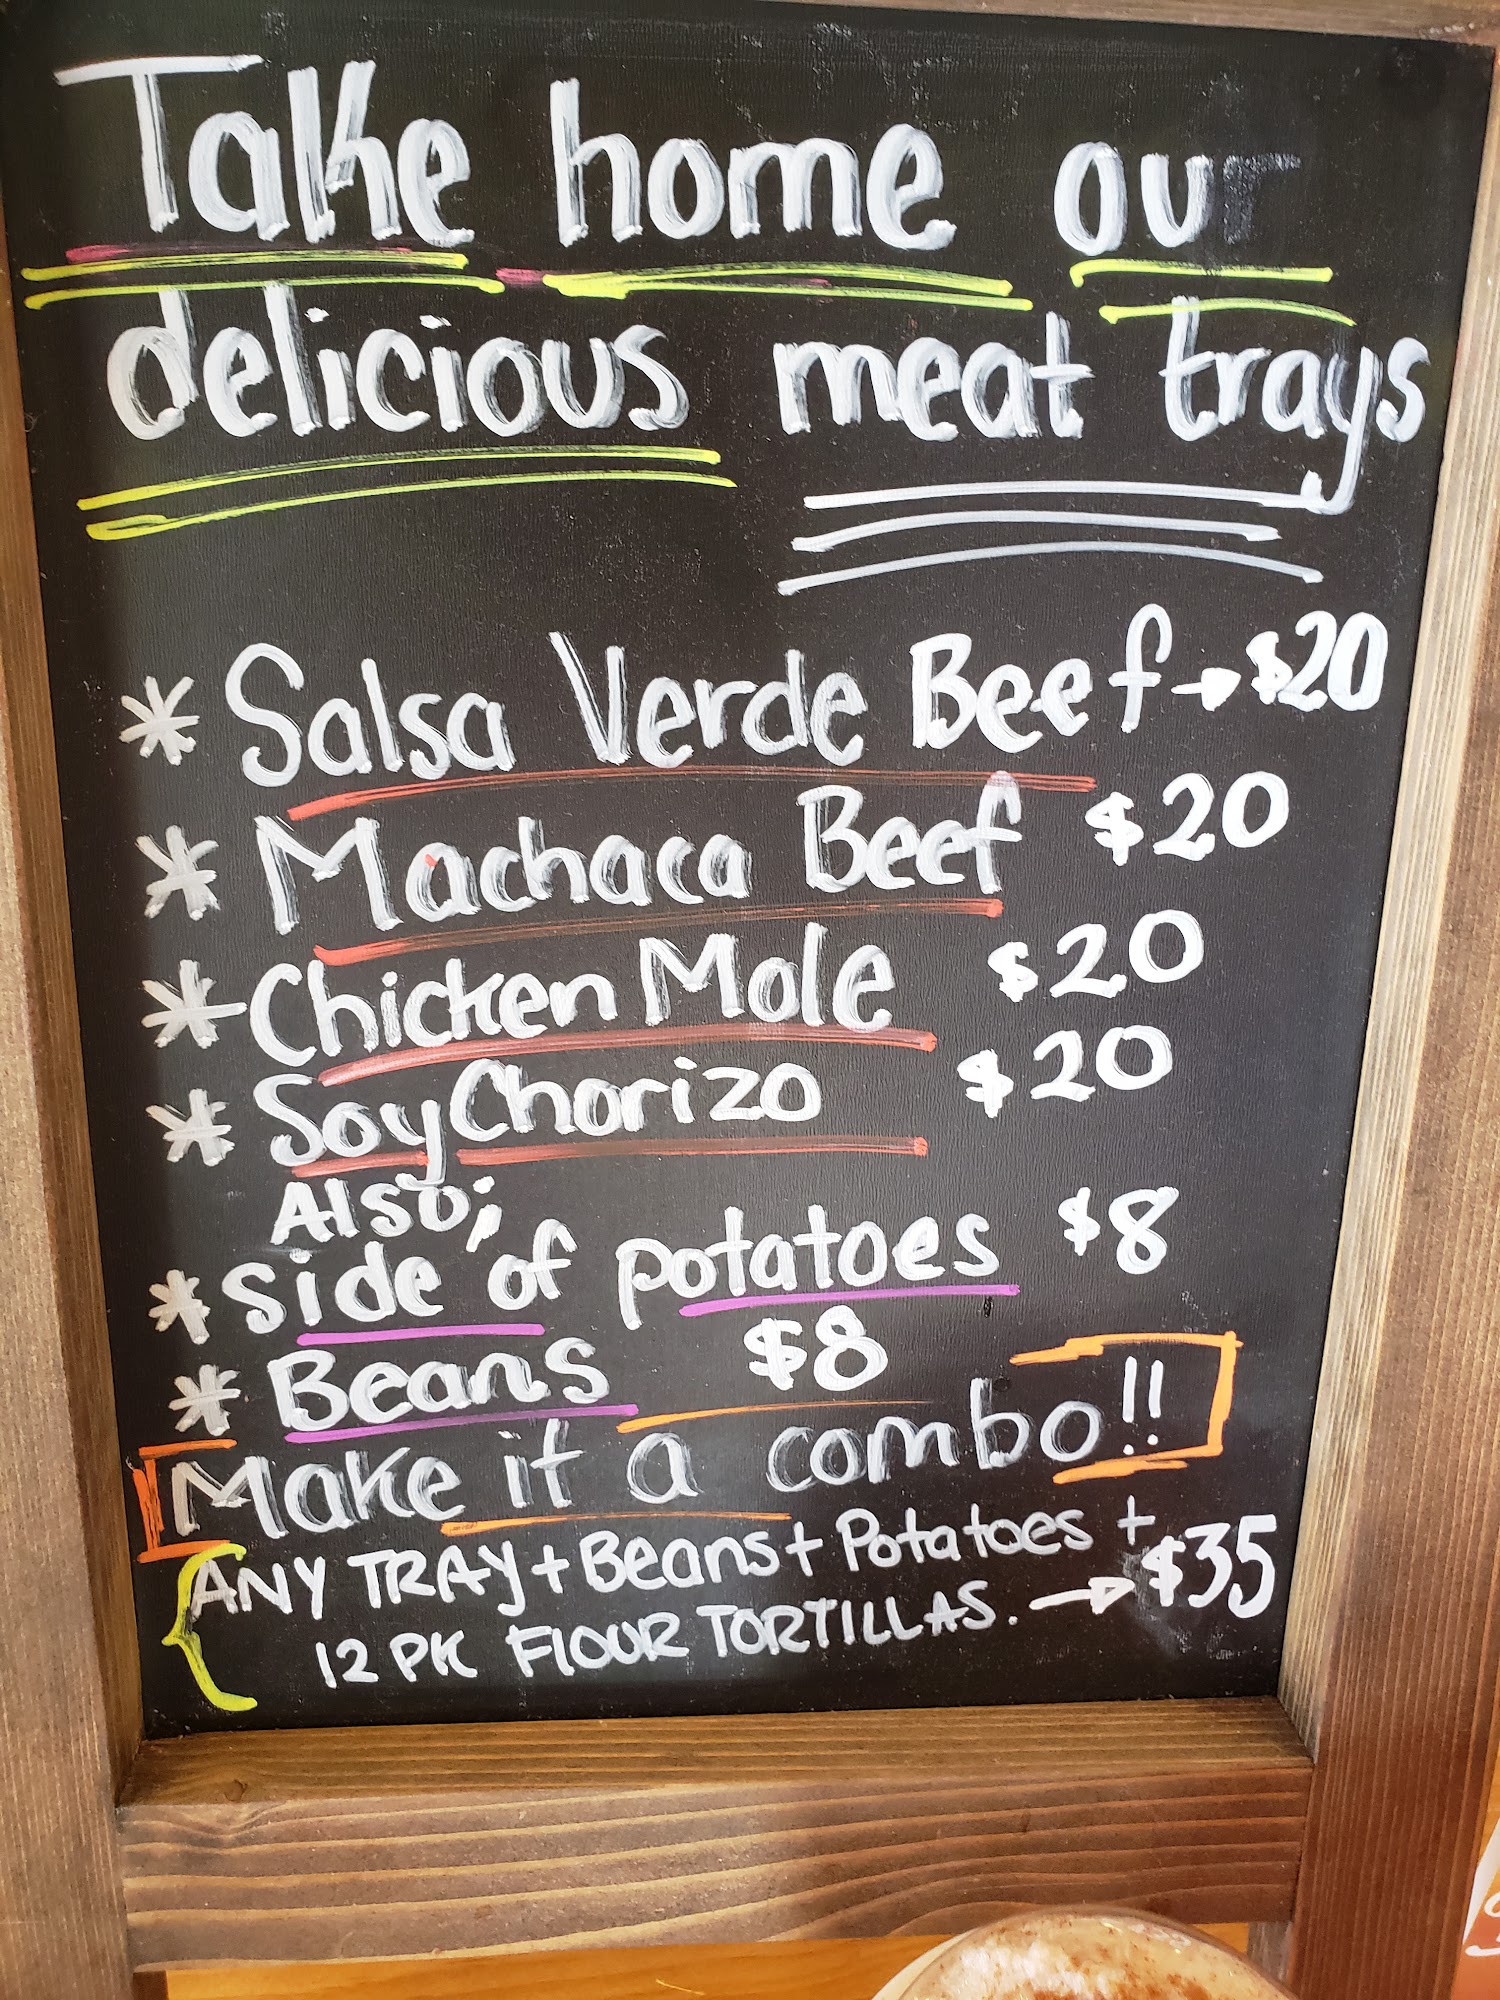 Take home our
delicious meat trays
* Salsa Verde Beef → $20
* Machaca Beef $20
* Chicken Mole $20
* Soy Chorizo $20
Also;
* Side of potatoes $8
* Beans $8
Make it a combo!!
ANY TRAY + Beans + Potatoes +
12 PK FLOUR TORTILLAS. → $35